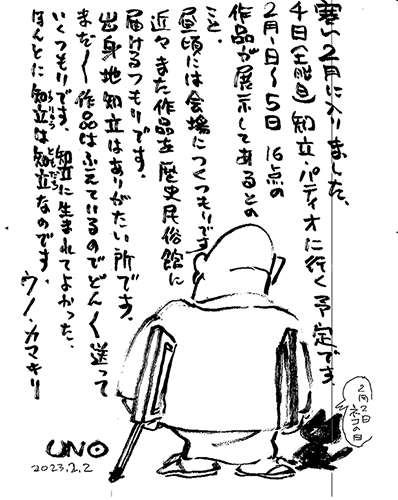 寒い2月に入りました。
4日(土曜日)知立・パティオに行く予定です。
2月1日〜5日 16点の
作品が展示してあるとの
こと。
昼頃には会場につくつもりです
近々また作品を歴史民俗館に
届けるつもりです。
出身地知立はありがたい所です。
まだ〱作品はふえているのでどん〱送って
いくつもりです。知立に生まれてよかった、
ほんとに知立は知立なのです。
ウノ・カマキリ
2月2日
ネコの日
UNO
2023.2.2